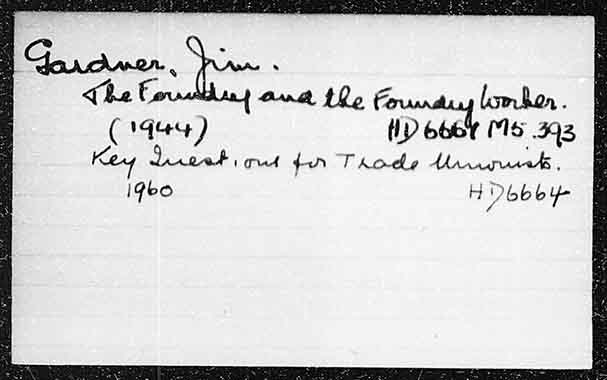 Gardner, Jim.
The Foundry and the Foundry Worker.
(1944) HD6668 M5.393
Key Questions for Trade Unionists.
1960 HD6664